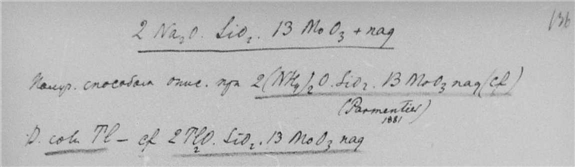 136
2 Na₂O. SiO₂. 13 MoO₃ + naq
Полур. способом опис. при 2(NH₄)₂O. SiO₂. 13 MoO₃ naq (cf)
(Parmentier)
1881
соль Tl — cf 2Tl₂O. SiO₂. 13 MoO₃ naq